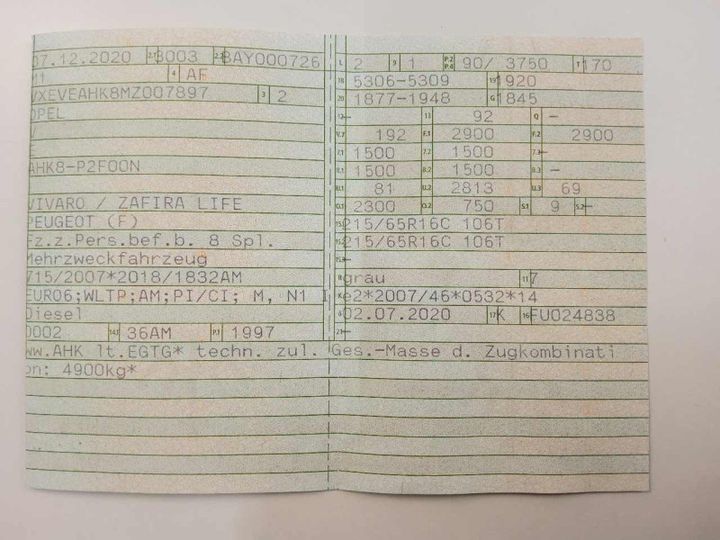 07.12.2020 2.1 3003 2.2 BAY000726
M1 4 AF
VXEVEAHK8MZ007897 3 2
OPEL
V
E
AHK8-P2F00N
VIVARO / ZAFIRA LIFE
PEUGEOT (F)
Fz.z.Pers.bef.b. 8 Spl.
Mehrzweckfahrzeug
715/2007*2018/1832AM
EURO6;WLTP;AM;PI/CI; M, N1 I
Diesel
0002 14.1 36AM P.1 1997
L 2 9 1 P.2 P.4 90/ 3750 T 170
18 5306-5309 19 1920
20 1877-1948 G 1845
12 - 13 92 Q -
V.7 192 F.1 2900 F.2 2900
7.1 1500 7.2 1500 7.3 -
8.1 1500 8.2 1500 8.3 -
U.1 81 U.2 2813 U.3 69
O.1 2300 O.2 750 S.1 9 S.2 -
15.1 215/65R16C 106T
15.2 215/65R16C 106T
15.3 -
R grau 11 7
K e2*2007/46*0532*14
6 02.07.2020 17 K 16 FU024838
21 -
ww.AHK lt.EGTG* techn. zul. Ges.-Masse d. Zugkombinati
on: 4900kg*